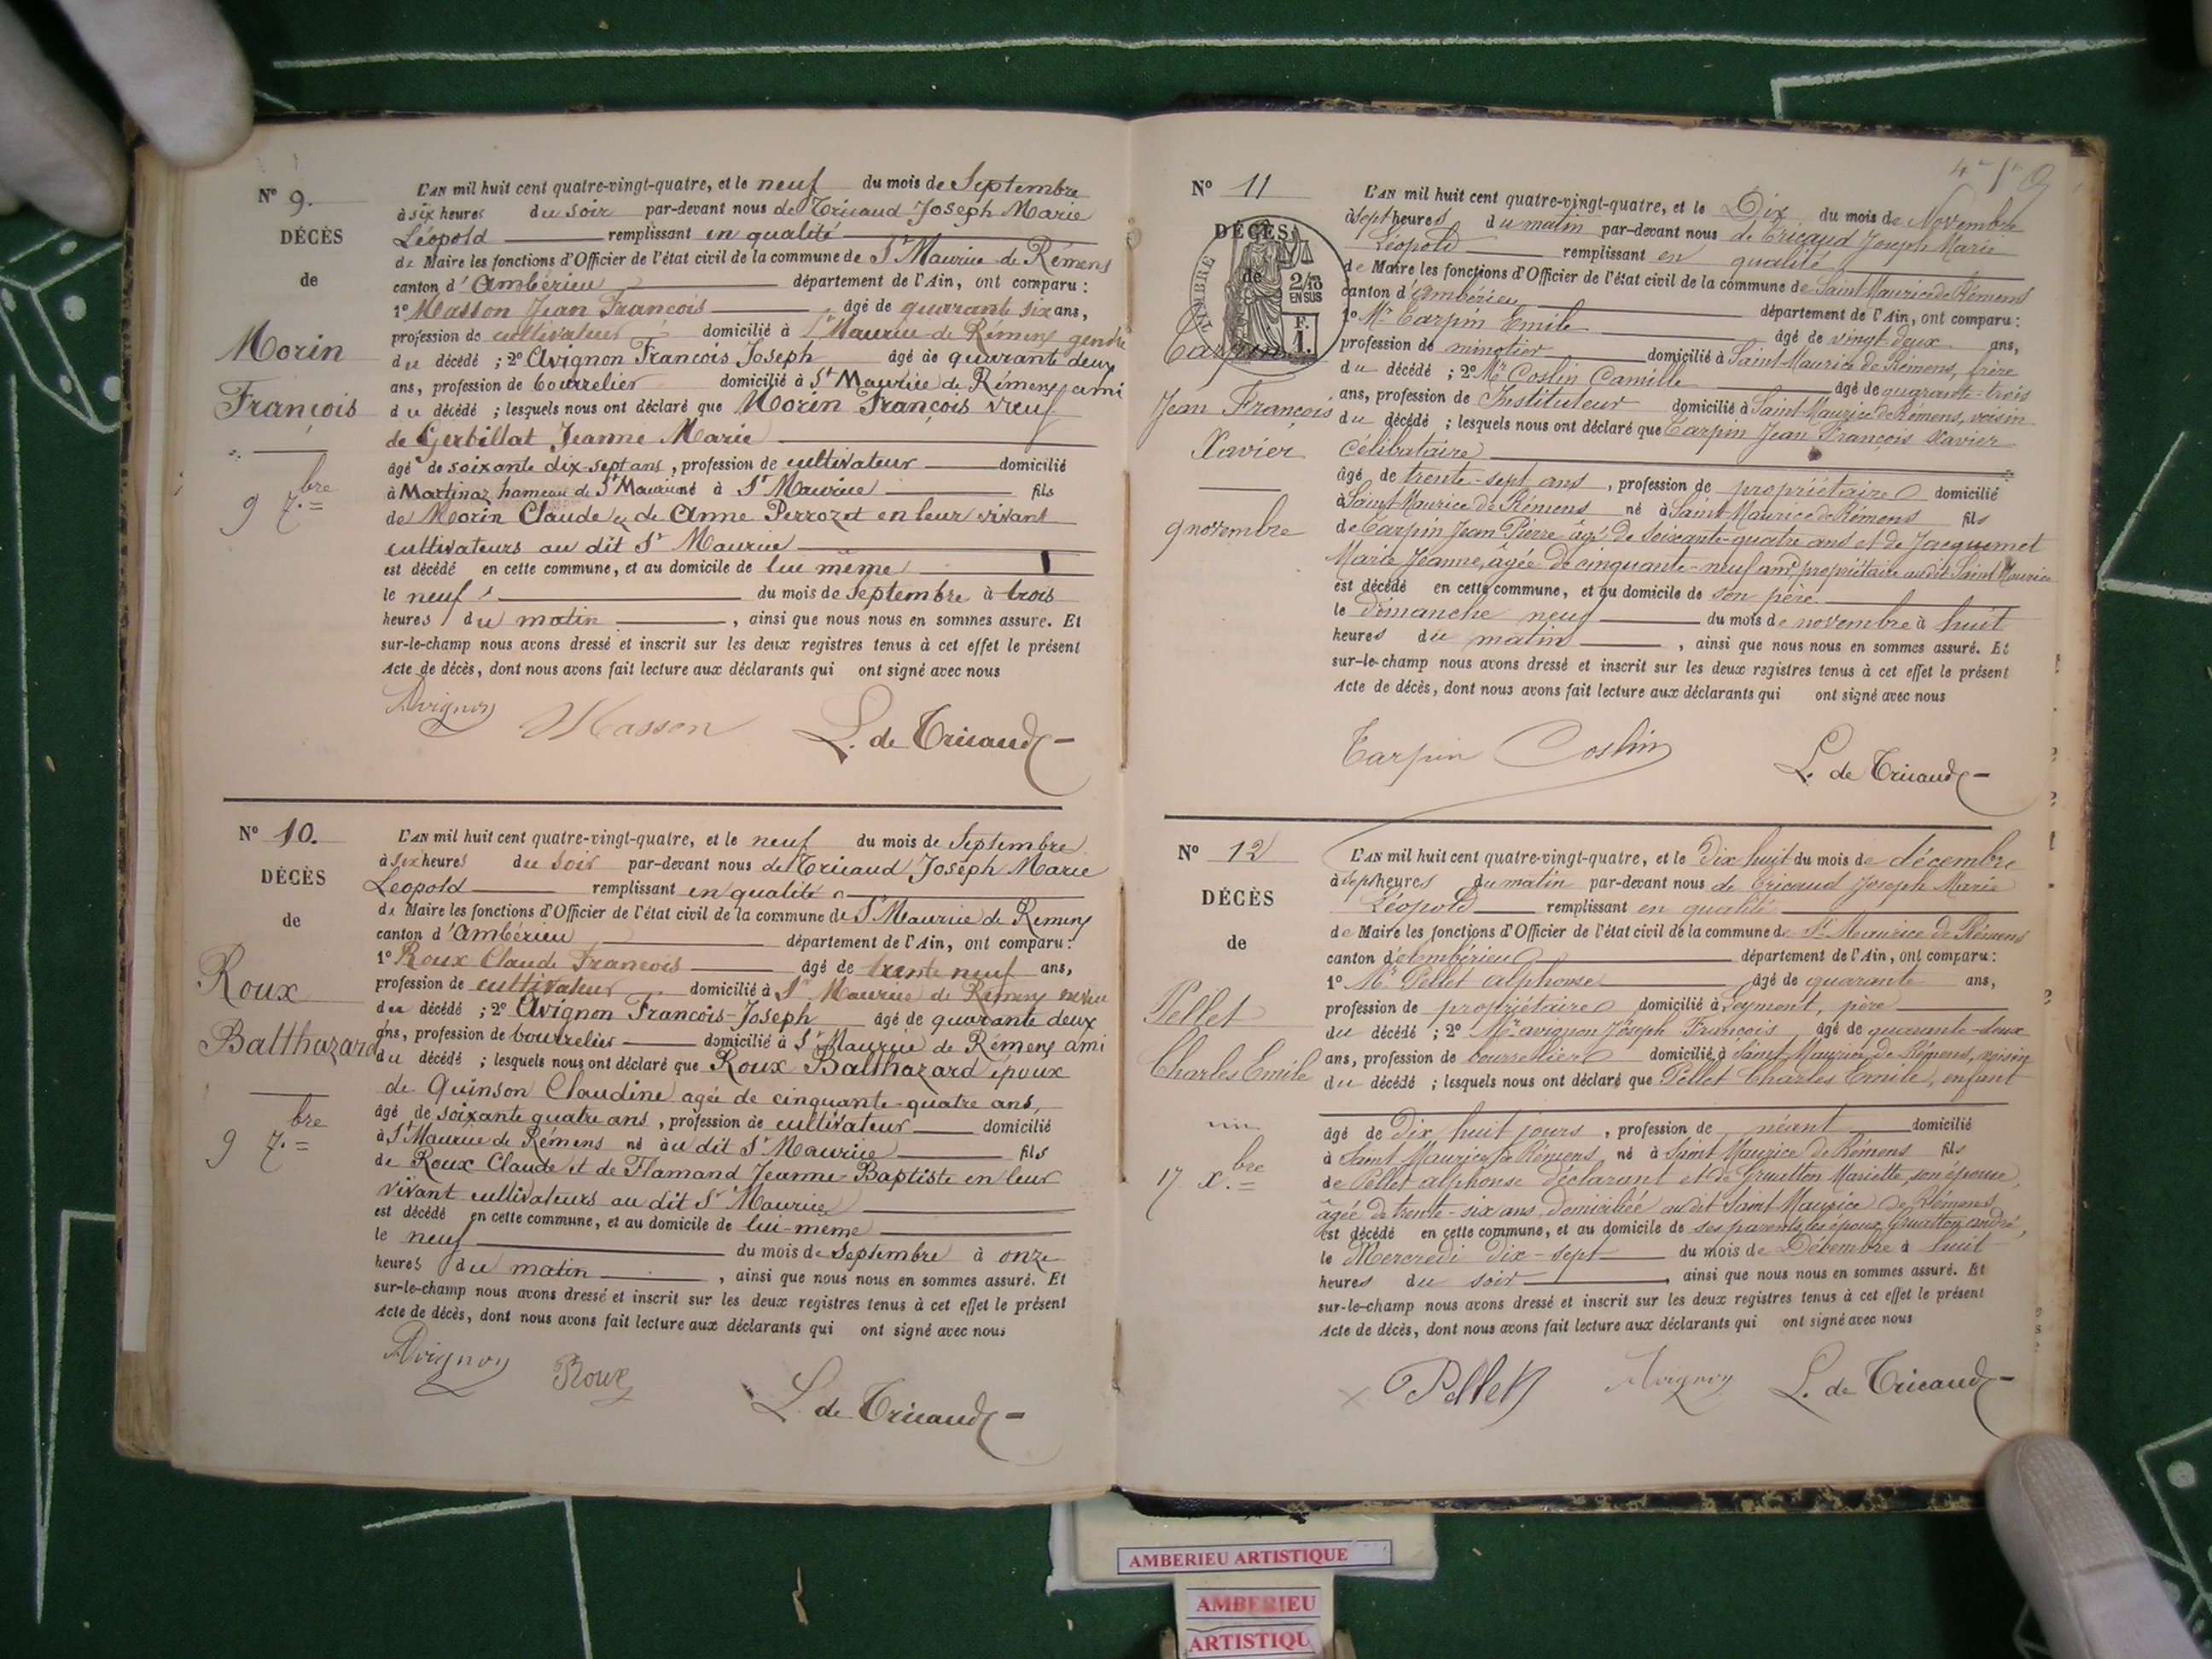 N° 9.
DÉCÈS
de
Morin
François
9 7.bre
L'AN mil huit cent quatre-vingt-quatre, et le neuf du mois de Septembre
à six heures du soir par-devant nous de Tricaud Joseph Marie
Léopold remplissant en qualité
de Maire les fonctions d'Officier de l'état civil de la commune de St Maurice de Rémens
canton d'Ambérieu département de l'Ain, ont comparu :
1° Masson Jean François âgé de quarante six ans,
profession de cultivateur domicilié à St Maurice de Rémens gendre
du décédé ; 2° Avignon François Joseph âgé de quarante deux
ans, profession de bourrelier domicilié à St Maurice de Rémens ami
du décédé ; lesquels nous ont déclaré que Morin François veuf
de Gerbillat Jeanne Marie
âgé de soixante dix-sept ans, profession de cultivateur domicilié
à Martinaz hameau de St Maurice né à St Maurice fils
de Morin Claude & de Anne Perrozet en leur vivant
cultivateurs au dit St Maurice
est décédé en cette commune, et au domicile de lui même
le neuf du mois de Septembre à trois
heures du matin, ainsi que nous nous en sommes assuré. Et
sur-le-champ nous avons dressé et inscrit sur les deux registres tenus à cet effet le présent
Acte de décès, dont nous avons fait lecture aux déclarants qui ont signé avec nous
Avignon Masson L. de Tricaud
N° 10.
DÉCÈS
de
Roux
Balthazard
9 7.bre
L'AN mil huit cent quatre-vingt-quatre, et le neuf du mois de Septembre
à six heures du soir par-devant nous de Tricaud Joseph Marie
Léopold remplissant en qualité
de Maire les fonctions d'Officier de l'état civil de la commune de St Maurice de Rémens
canton d'Ambérieu département de l'Ain, ont comparu :
1° Roux Claude François âgé de trente neuf ans,
profession de cultivateur domicilié à St Maurice de Rémens neveu
du décédé ; 2° Avignon François-Joseph âgé de quarante deux
ans, profession de bourrelier domicilié à St Maurice de Rémens ami
du décédé ; lesquels nous ont déclaré que Roux Balthazard époux
de Quinson Claudine agée de cinquante-quatre ans,
âgé de soixante quatre ans, profession de cultivateur domicilié
à St Maurice de Rémens né au dit St Maurice fils
de Roux Claude et de Flamand Jeanne-Baptiste en leur
vivant cultivateurs au dit St Maurice
est décédé en cette commune, et au domicile de lui-même
le neuf du mois de Septembre à onze
heures du matin, ainsi que nous nous en sommes assuré. Et
sur-le-champ nous avons dressé et inscrit sur les deux registres tenus à cet effet le présent
Acte de décès, dont nous avons fait lecture aux déclarants qui ont signé avec nous
Avignon Roux L. de Tricaud
N° 11
DÉCÈS
de
TIMBRE
2/10
EN SUS
F.
1.
Carpin
Jean François
Xavier
9 novembre
L'AN mil huit cent quatre-vingt-quatre, et le Dix du mois de Novembre
à sept heures du matin par-devant nous de Tricaud Joseph Marie
Léopold remplissant en qualité
de Maire les fonctions d'Officier de l'état civil de la commune de Saint Maurice de Rémens
canton d'Ambérieu département de l'Ain, ont comparu :
1° Mr Carpin Emile âgé de vingt deux ans,
profession de minotier domicilié à Saint Maurice de Rémens, frère
du décédé ; 2° Mr Coslin Camille âgé de quarante-trois
ans, profession de Instituteur domicilié à Saint Maurice de Rémens, voisin
du décédé ; lesquels nous ont déclaré que Carpin Jean François Xavier
célibataire
âgé de trente-sept ans, profession de propriétaire domicilié
à Saint Maurice de Rémens né à Saint Maurice de Rémens fils
de Carpin Jean Pierre âgé de soixante-quatre ans et de Jacquemet
Marie Jeanne, âgée de cinquante-neuf ans, propriétaire audit Saint Maurice
est décédé en cette commune, et au domicile de son père
le dimanche neuf du mois de novembre à huit
heures du matin, ainsi que nous nous en sommes assuré. Et
sur-le-champ nous avons dressé et inscrit sur les deux registres tenus à cet effet le présent
Acte de décès, dont nous avons fait lecture aux déclarants qui ont signé avec nous
Carpin Coslin L. de Tricaud
N° 12
DÉCÈS
de
Pellet
Charles Emile
17 x.bre
L'AN mil huit cent quatre-vingt-quatre, et le Dix huit du mois de décembre
à sept heures du matin par-devant nous de Tricaud Joseph Marie
Léopold remplissant en qualité
de Maire les fonctions d'Officier de l'état civil de la commune de St Maurice de Rémens
canton d'Ambérieu département de l'Ain, ont comparu :
1° Mr Pellet alphonse âgé de quarante ans,
profession de propriétaire domicilié à Leyment, père
du décédé ; 2° Mr avignon Joseph François âgé de quarante-deux
ans, profession de bourrellier domicilié à Saint Maurice de Rémens, voisin
du décédé ; lesquels nous ont déclaré que Pellet Charles Emile, enfant
âgé de Dix huit jours, profession de néant domicilié
à Saint Maurice de Rémens né à Saint Maurice de Rémens fils
de Pellet alphonse déclarant et de Gruatton Mariette son épouse,
âgée de trente-six ans, domiciliée au dit Saint Maurice de Rémens
est décédé en cette commune, et au domicile de ses parents les époux Gruatton andré,
le Mercredi dix-sept du mois de Décembre à huit
heures du soir, ainsi que nous nous en sommes assuré. Et
sur-le-champ nous avons dressé et inscrit sur les deux registres tenus à cet effet le présent
Acte de décès, dont nous avons fait lecture aux déclarants qui ont signé avec nous
Pellet Avignon L. de Tricaud
AMBERIEU ARTISTIQUE
AMBERIEU
ARTISTIQU